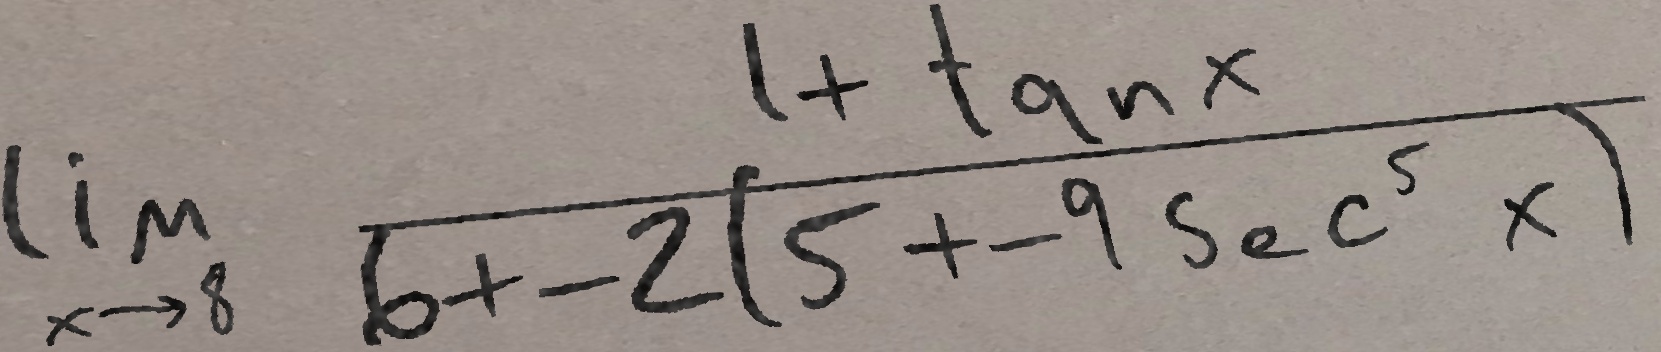 lim x→8 (1 + tan x) / (6 + -2(5 + -9 sec^5 x))